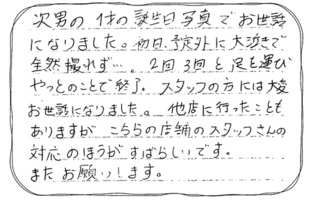 次男の 1才の誕生日写真でお世話
になりました。初日、予定外に大泣きで
全然撮れず…。2回3回と足を運び
やっとのことで終了。スタッフの方には大変
お世話になりました。他店に行ったことも
ありますが こちらの店舗のスタッフさんの
対応のほうがすばらしいです。
またお願いします。